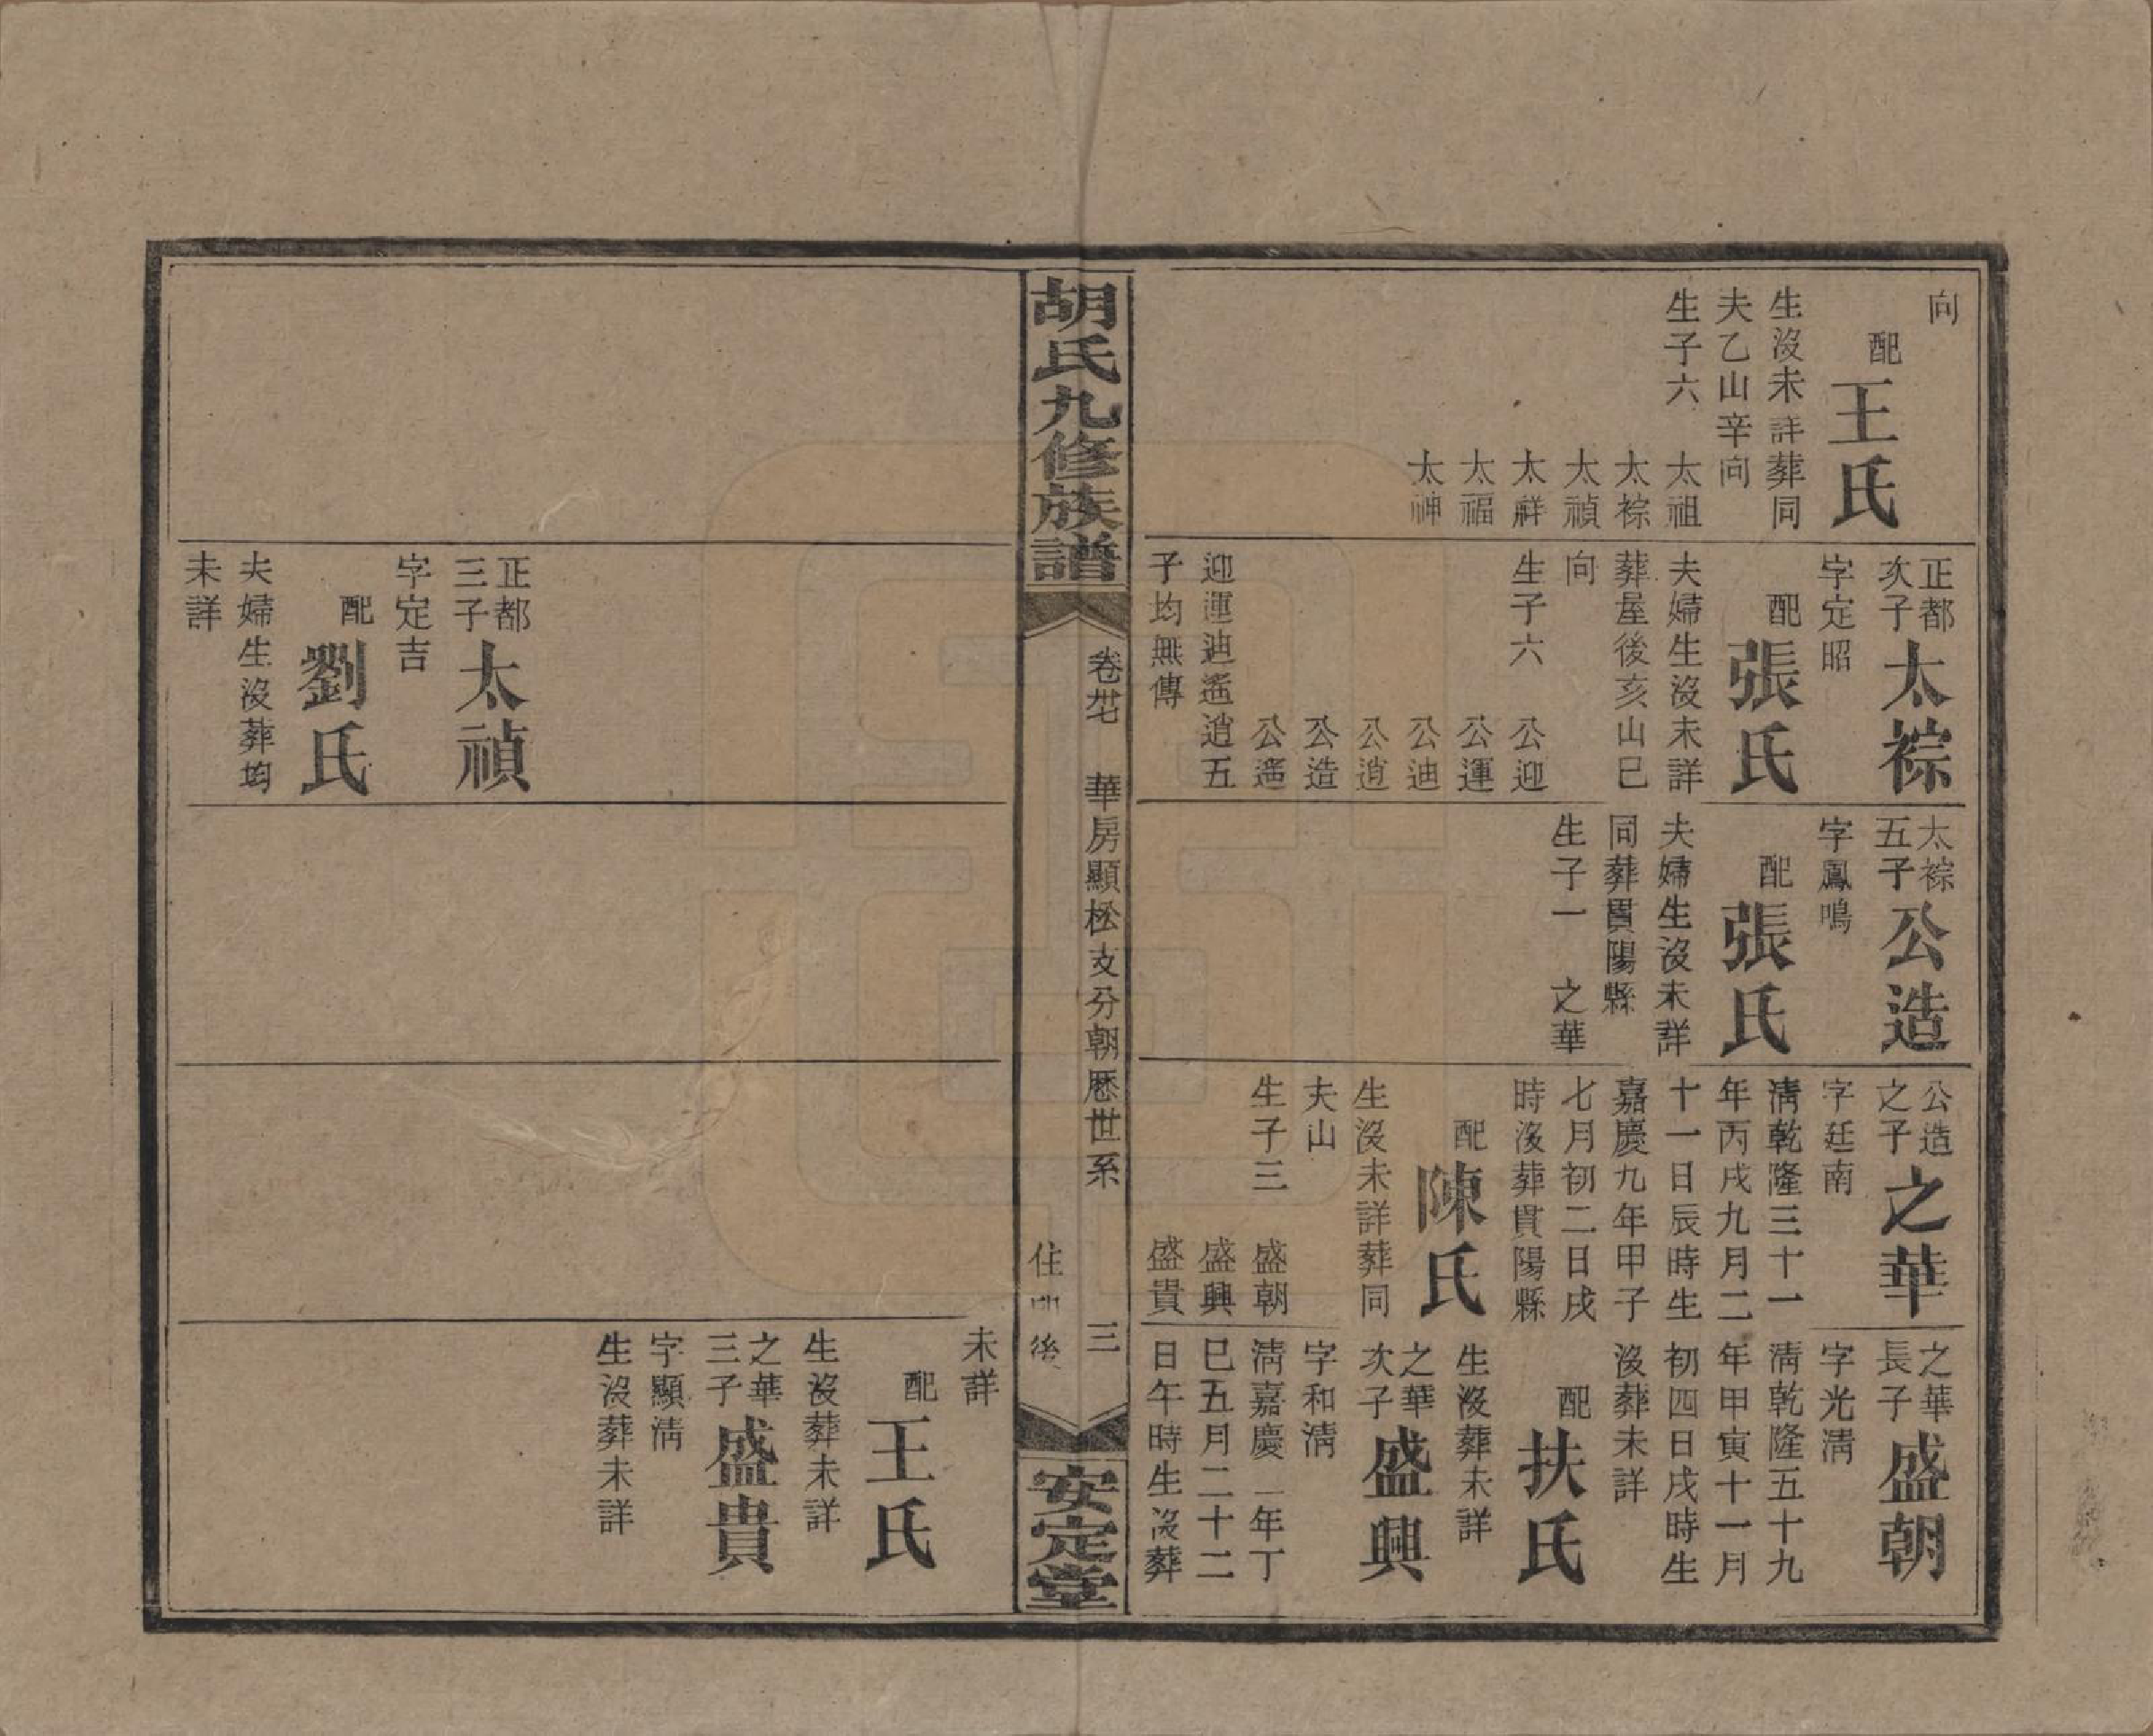 向
配王氏
生沒未詳葬同
夫乙山辛向
生子六 太祖
太棕
太禎
太祥
太福
太神
正都次子太棕
字定昭
配張氏
夫婦生沒未詳
葬屋後亥山巳
向
生子六 公迎
公運
公迪
公逍
公造
公遙
迎運迪遙逍五
子均無傳
太棕五子公造
字鳳鳴
配張氏
夫婦生沒未詳
同葬貫陽縣
生子一 之華
公造之子之華
字廷南
淸乾隆三十一
年丙戌九月二
十一日辰時生
嘉慶九年甲子
七月初二日戌
時沒葬貫陽縣
配陳氏
生沒未詳葬同
夫山
生子三 盛朝
盛興
盛貴
之華長子盛朝
字光淸
淸乾隆五十九
年甲寅十一月
初四日戌時生
沒葬未詳
配扶氏
生沒葬未詳
之華次子盛興
字和淸
淸嘉慶二年丁
巳五月二十二
日午時生沒葬
胡氏九修族譜
卷卅七 華房顯松支分朝歷世系 三
住 後
安定堂
正都三子太禎
字定吉
配劉氏
夫婦生沒葬均
未詳
未詳
配王氏
生沒葬未詳
之華三子盛貴
字顯淸
生沒葬未詳